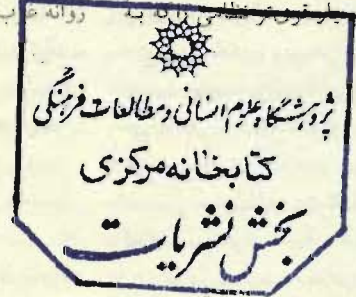 روانه
پژوهشگاه علوم انسانی و مطالعات فرهنگی
کتابخانه مرکزی
بخش نشریات